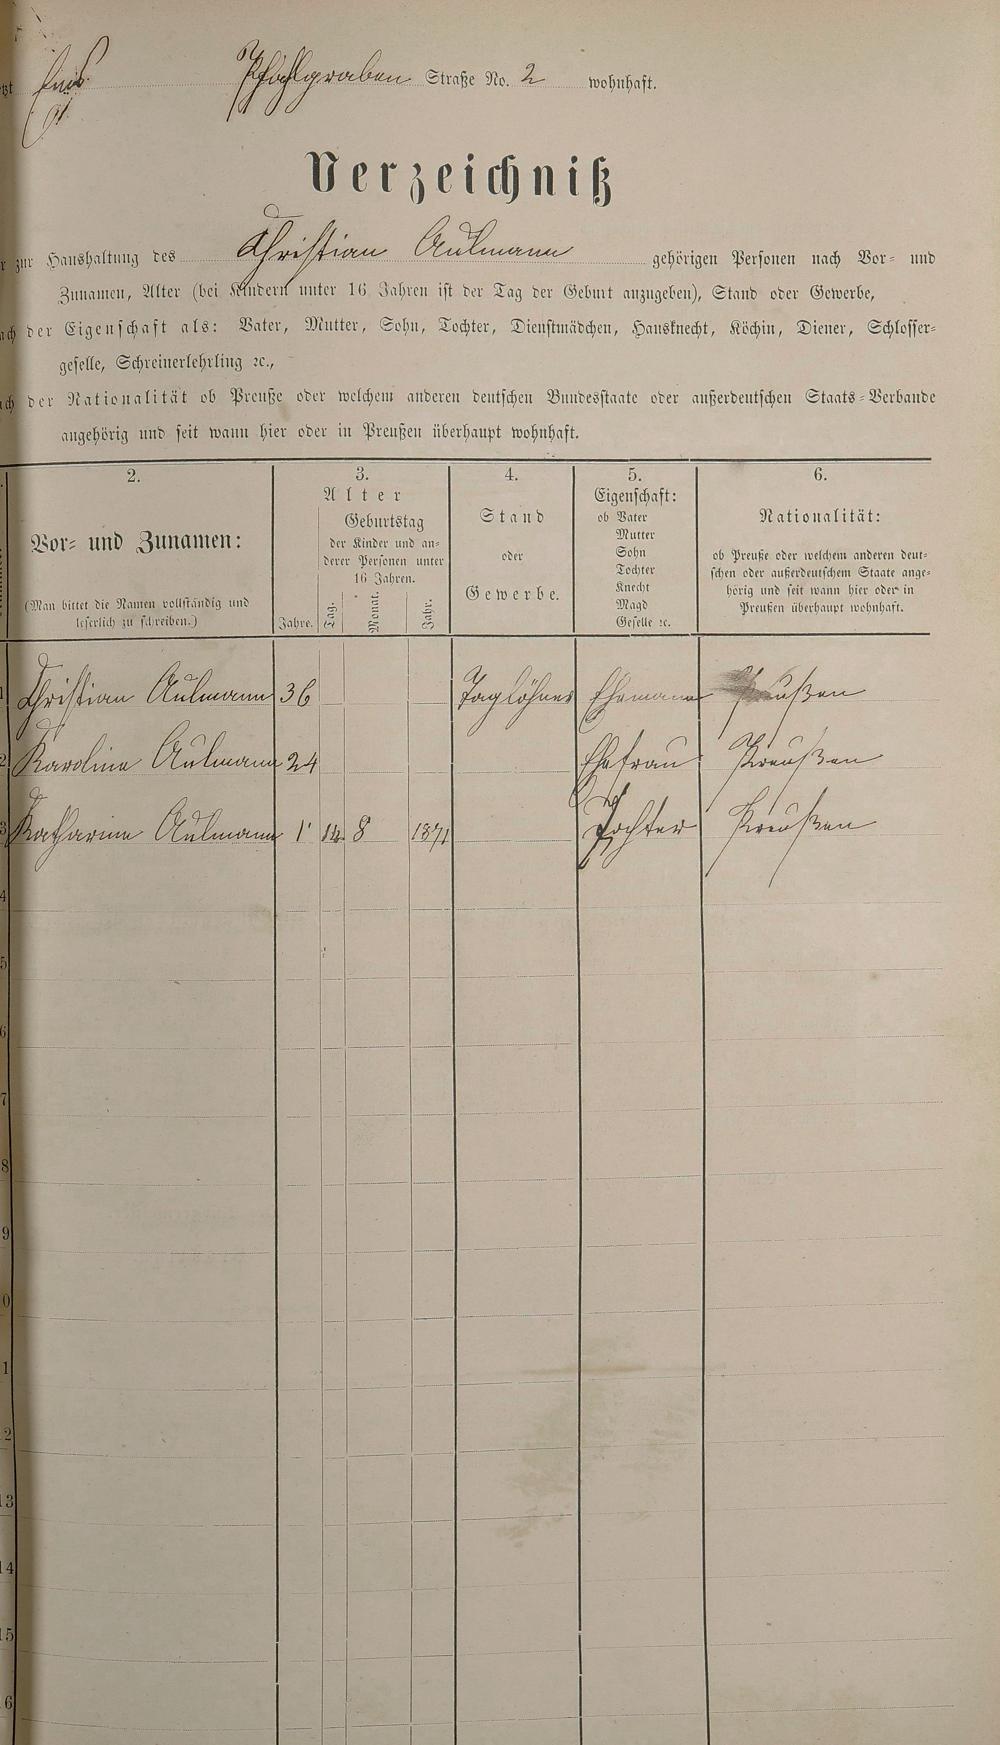 tzt Ems Pfahlgraben Straße No. 2 wohnhaft.
Verzeichniß
r zur Haushaltung des Christian Aulmann gehörigen Personen nach Vor- und
Zunamen, Alter (bei Kindern unter 16 Jahren ist der Tag der Geburt anzugeben), Stand oder Gewerbe,
ach der Eigenschaft als: Vater, Mutter, Sohn, Tochter, Dienstmädchen, Hausknecht, Köchin, Diener, Schlosser-
geselle, Schreinerlehrling ꝛc.,
ach der Nationalität ob Preuße oder welchem anderen deutschen Bundesstaate oder außerdeutschen Staats-Verbande
angehörig und seit wann hier oder in Preußen überhaupt wohnhaft.
2.
Vor- und Zunamen:
(Man bittet die Namen vollständig und
leserlich zu schreiben.)
3.
Alter
Geburtstag
der Kinder und an-
derer Personen unter
16 Jahren.
Jahre. Tag. Monat. Jahr.
4.
Stand
oder
Gewerbe.
5.
Eigenschaft:
ob Vater
Mutter
Sohn
Tochter
Knecht
Magd
Geselle ꝛc.
6.
Nationalität:
ob Preuße oder welchem anderen deut-
schen oder außerdeutschem Staate ange-
hörig und seit wann hier oder in
Preußen überhaupt wohnhaft.
1 Christian Aulmann 36 Taglöhner Ehemann Preußen
2 Karolina Aulmann 24 Ehefrau Preußen
3 Katharina Aulmann 1 14. 8 1871 Tochter Preußen
4
5
6
7
8
9
0
1
2
13
14
15
6